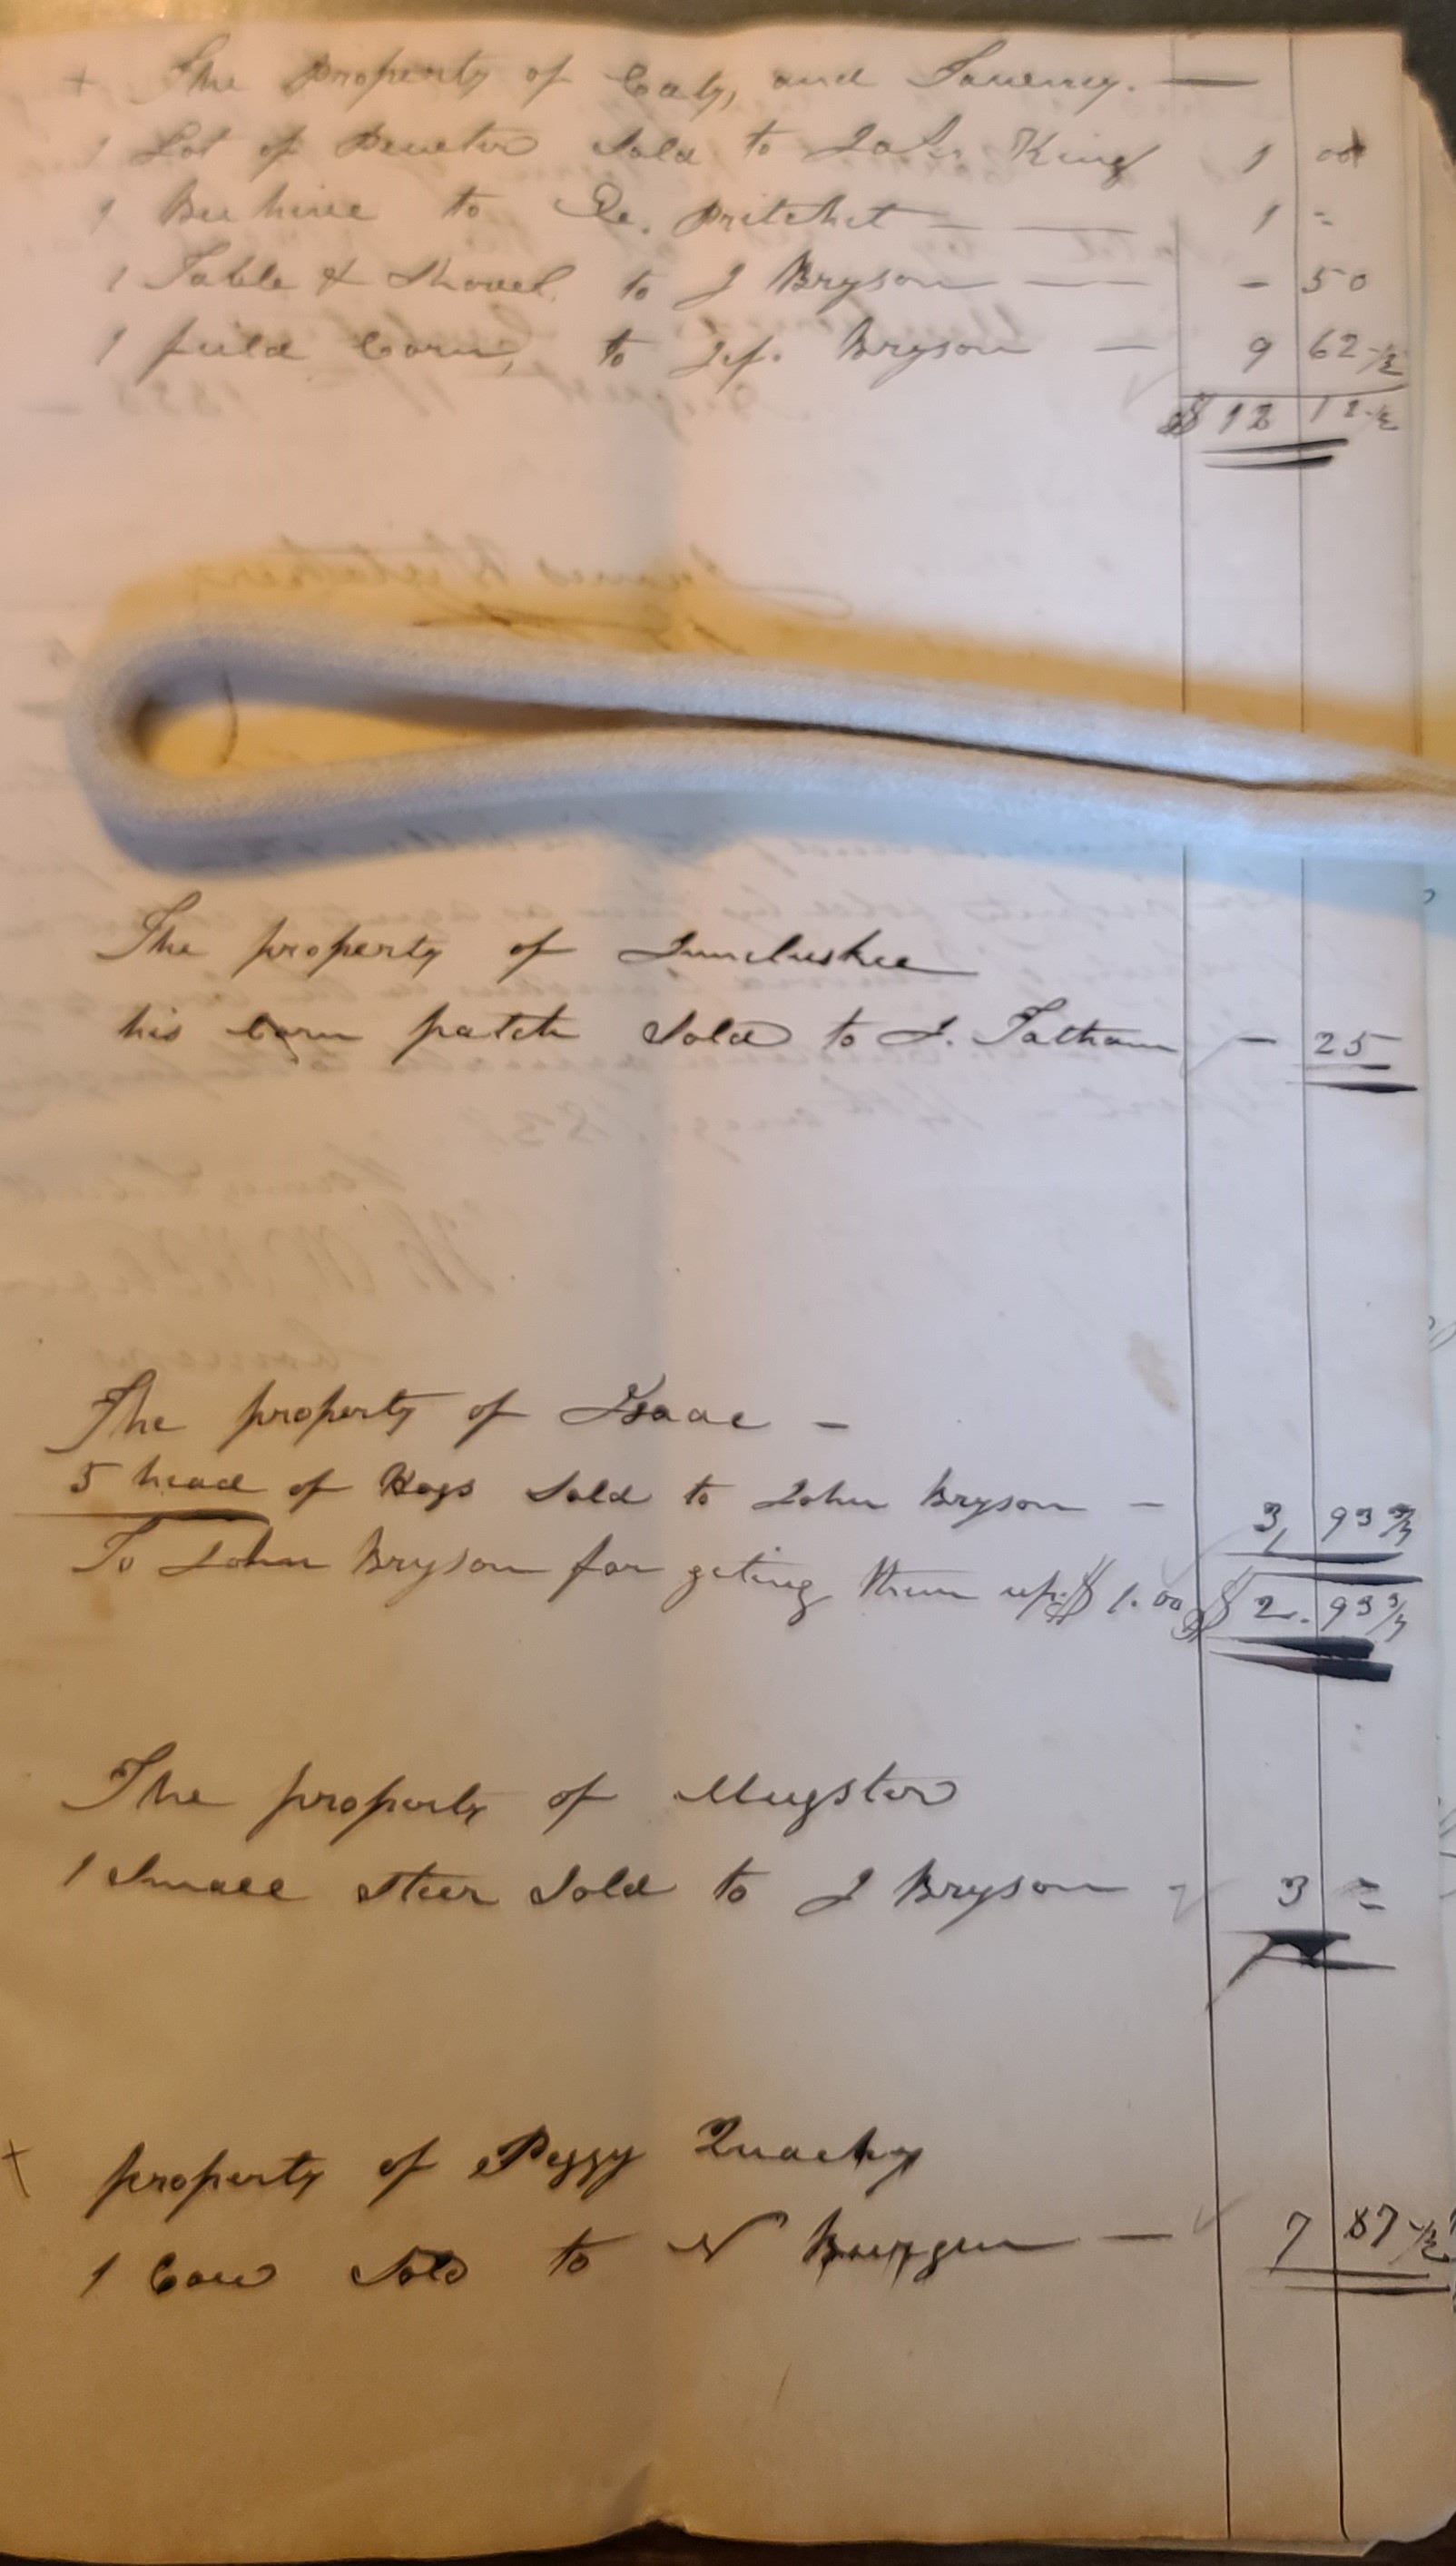 + The property of Caty, and Taueney. —
1 Lot of Pewter Sold to John King 1 00
1 Bee hive to Pritchet — 1 =
1 Table & Shovel to J Bryson — - 50
1 field Corn, to Jf. Bryson — 9 62-½
$12 12-½
The property of Juneluskee
his Corn patch Sold to J. Tatham — 25
The property of Isaac -
5 head of Hogs Sold to John Bryson - 3, 93 ¾
To John Bryson for geting them up $1.00 $2. 93 ¾
The property of Mugster
1 Small steer Sold to J Bryson - 3 =
+ property of Peggy Quachy
1 Cow Sold to N — 7 87-½